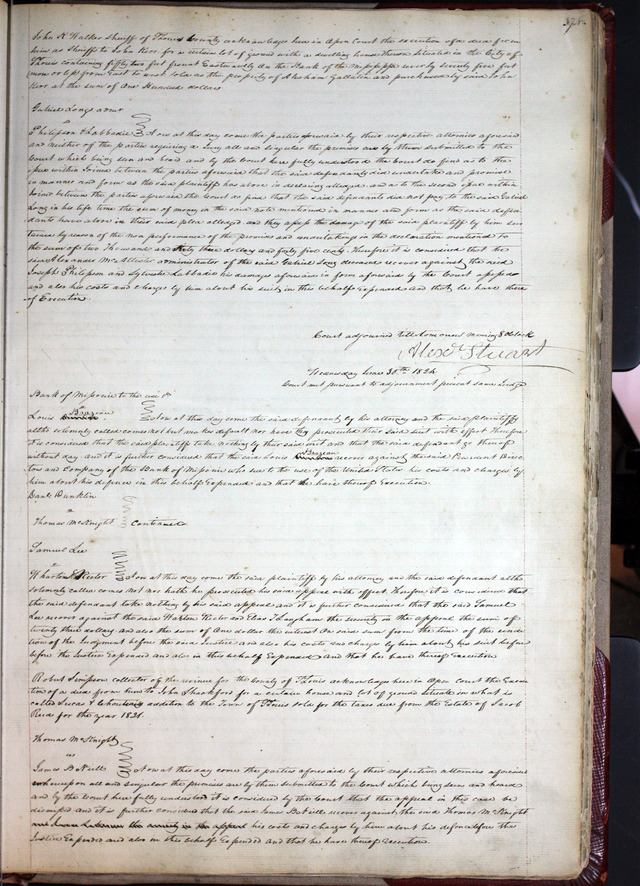 375
John K Walker Sheriff of St Louis County acknowledges here in Open Court the execution of a deed from
him as Sheriff to John Kerr for a certain lot of ground with a dwelling house thereon situated in the City of
St Louis containing fifty two feet front Eastwardly on the Bank of the Mississippi river by seventy five feet
more or less from East to west sold as the property of Abraham Gallatin and purchased by said John
Kerr at the sum of One Hundred dollars
Gabriel Longs admr
vs
Philipson & Labbadie Now at this day come the parties aforesaid by their respective attornies aforesaid
and neither of the parties requiring a Jury all and singular the premises are by them submitted to the
Court which being seen and heard and by the Court here fully understood the Court do find as to the
issue within Joined between the parties aforesaid that the said defendants did undertake and promise
in manner and form as the said plaintiff has above in declaring alledged and as to the second issue within
Joined between the parties aforesaid the Court do find that the said defendants did not pay to the said Gabriel
Long in his life time the sum of money in the said note mentioned in manner and form as the said defen
dants have above in their said plea alledged and they assess the damage of the said plaintiff by him sus
tained by reason of the non performance of the promises and undertakings in the declaration mentioned to
the sum of two Thousand and sixty three dollars and forty five cents Therefore it is considered that the
said Alexander McAllister administrator of the said Gabriel Long deceased recover against the said
Joseph Philipson and Sylvestre Labbadie his damages aforesaid in form aforesaid by the Court assessed
and also his costs and charges by him about his suit in this behalf Expended and that he have there
of Execution
Court adjourned till tomorrow morning 8 oClock
Alexr Stuart
Wednesday June 30th 1824
Court met pursuant to adjournment present same Judge
Bank of Missouri to the use &c
vs
Louis Brazeau Now at this day come the said defendant by his attorney and the said plaintiffs
altho solemnly called comes not but makes default nor have they prosecuted their said suit with effect Therefore
it is considered that the said plaintiffs take nothing by their said writ and that the said defendant go thereof
without day and it is further considered that the said Louis Brazeau recover against the said President Direc
tors and Company of the Bank of Missouri who sue to the use of the United States his costs and charges by
him about his defence in this behalf Expended and that he have thereof Execution
Danl Dunklin
vs
Thomas McKnight Continued
Samuel Lee
vs
Wharton Rector Now at this day come the said plaintiff by his attorney and the said defendant altho
solemnly called comes not nor hath he prosecuted his said appeal with effect Therefore it is considered that
the said defendant take nothing by his said appeal and it is further considered that the said Samuel
Lee recover against the said Wharton Rector and Elias Langham the security in the appeal the sum of
twenty three dollars and also the sum of One dollar the interest on said sum from the time of the rendi
tion of the Judgment before the said Justice and also his costs and charges by him about his suit before
before the Justice Expended and also in this behalf Expended and that he have thereof Execution
Robert Simpson collector of the revenue for the County of St Louis acknowledges here in Open court the Execu
tion of a deed from him to John Shackford for a certain house and lot of ground situate in what is
called Lucas & Chouteaus addition to the Town of St Louis sold for the taxes due from the Estate of Jacob
for the year 1821
Thomas McKnight
vs
James Now at this day come the parties aforesaid by their respective attornies aforesaid
whereupon all and singular the premises are by them submitted to the Court which being seen and heard
and by the Court here fully understood it is considered by the Court that the appeal in this case be
dismissed and it is further considered that the said James recover against the said Thomas McKnight
the security in the appeal his costs and charges by him about his defence before the
Justice Expended and also in this behalf Expended and that he have thereof Execution